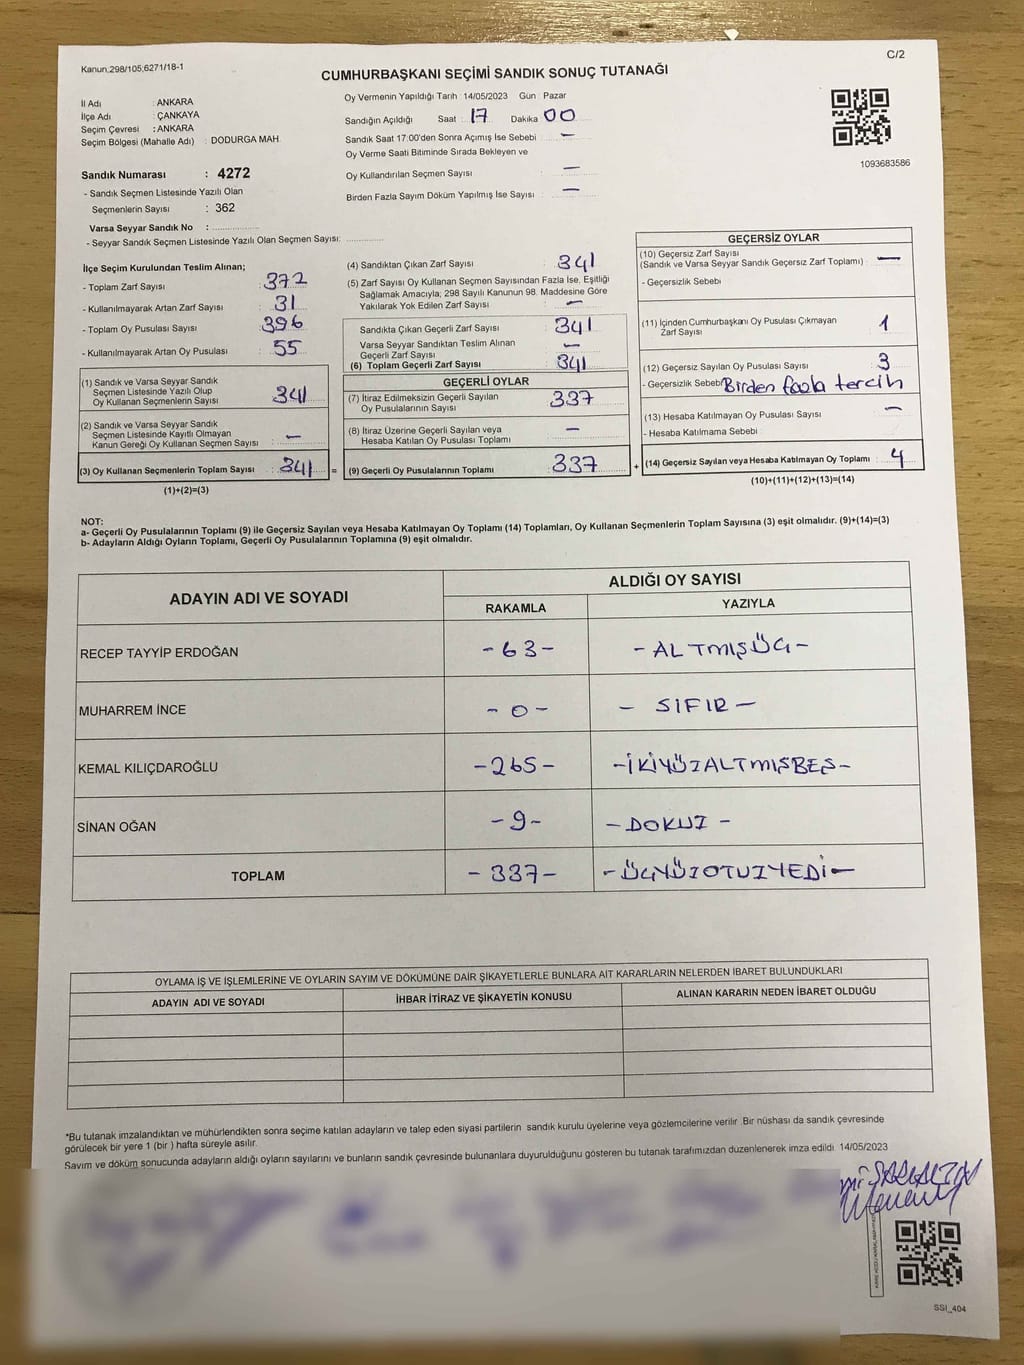 Kanun;298/105;6271/18-1
C/2
CUMHURBAŞKANI SEÇİMİ SANDIK SONUÇ TUTANAĞI
İl Adı : ANKARA
İlçe Adı : ÇANKAYA
Seçim Çevresi : ANKARA
Seçim Bölgesi (Mahalle Adı) : DODURGA MAH.
Sandık Numarası : 4272
- Sandık Seçmen Listesinde Yazılı Olan
Seçmenlerin Sayısı : 362
Varsa Seyyar Sandık No :
- Seyyar Sandık Seçmen Listesinde Yazılı Olan Seçmen Sayısı:
Oy Vermenin Yapıldığı Tarih :14/05/2023 Gün : Pazar
Sandığın Açıldığı Saat : 17 Dakika 00
Sandık Saat 17:00'den Sonra Açımış İse Sebebi : —
Oy Verme Saati Bitiminde Sırada Bekleyen ve
Oy Kullandırılan Seçmen Sayısı : —
Birden Fazla Sayım Döküm Yapılmış İse Sayısı : —
1093683586
İlçe Seçim Kurulundan Teslim Alınan;
- Toplam Zarf Sayısı : 372
- Kullanılmayarak Artan Zarf Sayısı : 31
- Toplam Oy Pusulası Sayısı : 396
- Kullanılmayarak Artan Oy Pusulası : 55
(1) Sandık ve Varsa Seyyar Sandık
Seçmen Listesinde Yazılı Olup
Oy Kullanan Seçmenlerin Sayısı : 341
(2) Sandık ve Varsa Seyyar Sandık
Seçmen Listesinde Kayıtlı Olmayan
Kanun Gereği Oy Kullanan Seçmen Sayısı : —
(3) Oy Kullanan Seçmenlerin Toplam Sayısı : 341 =
(1)+(2)=(3)
(4) Sandıktan Çıkan Zarf Sayısı : 341
(5) Zarf Sayısı Oy Kullanan Seçmen Sayısından Fazla İse, Eşitliği
Sağlamak Amacıyla; 298 Sayılı Kanunun 98. Maddesine Göre
Yakılarak Yok Edilen Zarf Sayısı : —
Sandıkta Çıkan Geçerli Zarf Sayısı : 341
Varsa Seyyar Sandıktan Teslim Alınan
Geçerli Zarf Sayısı : —
(6) Toplam Geçerli Zarf Sayısı : 341
GEÇERLİ OYLAR
(7) İtiraz Edilmeksizin Geçerli Sayılan
Oy Pusulalarının Sayısı : 337
(8) İtiraz Üzerine Geçerli Sayılan veya
Hesaba Katılan Oy Pusulası Toplamı : —
(9) Geçerli Oy Pusulalarının Toplamı : 337 +
GEÇERSİZ OYLAR
(10) Geçersiz Zarf Sayısı
(Sandık ve Varsa Seyyar Sandık Geçersiz Zarf Toplamı) : —
- Geçersizlik Sebebi :
(11) İçinden Cumhurbaşkanı Oy Pusulası Çıkmayan
Zarf Sayısı : 1
(12) Geçersiz Sayılan Oy Pusulası Sayısı : 3
- Geçersizlik Sebebi: Birden fazla tercih
(13) Hesaba Katılmayan Oy Pusulası Sayısı : —
- Hesaba Katılmama Sebebi :
(14) Geçersiz Sayılan veya Hesaba Katılmayan Oy Toplamı : 4
(10)+(11)+(12)+(13)=(14)
NOT:
a- Geçerli Oy Pusulalarının Toplamı (9) ile Geçersiz Sayılan veya Hesaba Katılmayan Oy Toplamı (14) Toplamları, Oy Kullanan Seçmenlerin Toplam Sayısına (3) eşit olmalıdır. (9)+(14)=(3)
b- Adayların Aldığı Oyların Toplamı, Geçerli Oy Pusulalarının Toplamına (9) eşit olmalıdır.
ADAYIN ADI VE SOYADI
ALDIĞI OY SAYISI
RAKAMLA YAZIYLA
RECEP TAYYİP ERDOĞAN -63- -ALTMIŞÜÇ-
MUHARREM İNCE -0- - SIFIR -
KEMAL KILIÇDAROĞLU -265- -İKİYÜZALTMIŞBEŞ-
SİNAN OĞAN -9- -DOKUZ -
TOPLAM -337- -ÜÇYÜZOTUZYEDİ-
OYLAMA İŞ VE İŞLEMLERİNE VE OYLARIN SAYIM VE DÖKÜMÜNE DAİR ŞİKAYETLERLE BUNLARA AİT KARARLARIN NELERDEN İBARET BULUNDUKLARI
ADAYIN ADI VE SOYADI İHBAR İTİRAZ VE ŞİKAYETİN KONUSU ALINAN KARARIN NEDEN İBARET OLDUĞU
*Bu tutanak imzalandıktan ve mühürlendikten sonra seçime katılan adayların ve talep eden siyasi partilerin sandık kurulu üyelerine veya gözlemcilerine verilir. Bir nüshası da sandık çevresinde
görülecek bir yere 1 (bir ) hafta süreyle asılır.
Sayım ve döküm sonucunda adayların aldığı oyların sayılarını ve bunların sandık çevresinde bulunanlara duyurulduğunu gösteren bu tutanak tarafımızdan düzenlenerek imza edildi. 14/05/2023
SSI_404